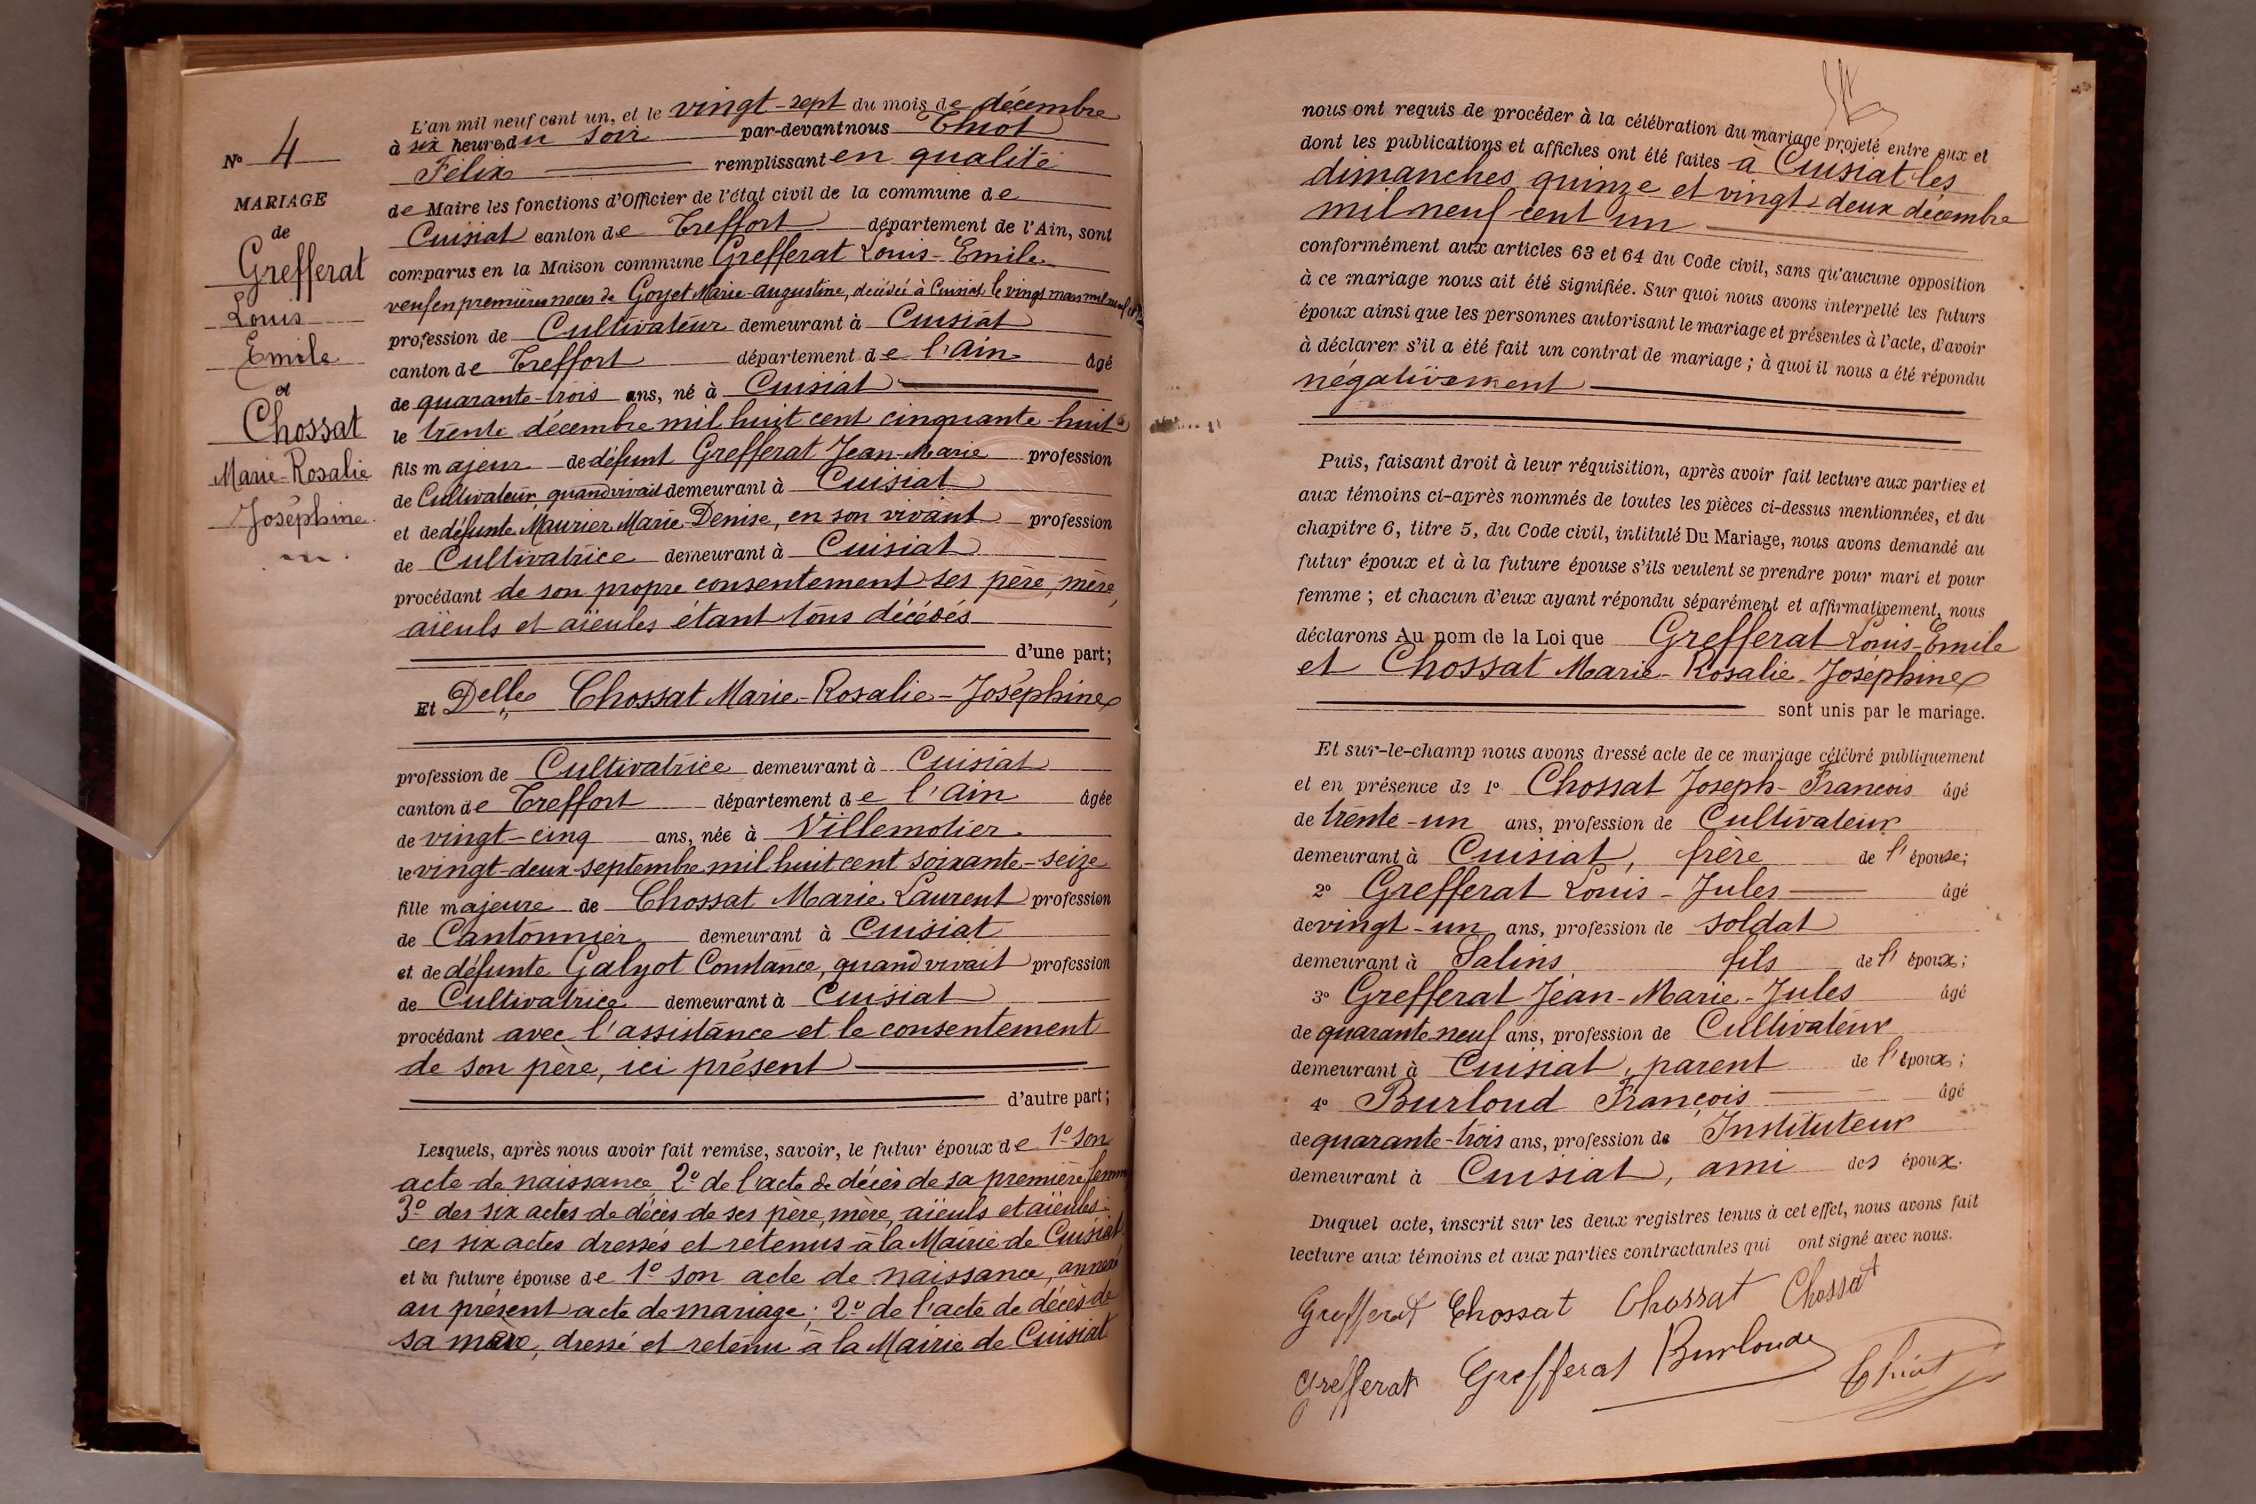 N° 4
MARIAGE
de
Grefferat
Louis
Emile
et
Chossat
Marie-Rosalie
Joséphine
L'an mil neuf cent un, et le vingt-sept du mois de décembre
à six heures du soir par-devant nous Thiot
Félix remplissant en qualité
de Maire les fonctions d'Officier de l'état civil de la commune de
Cuisiat canton de Treffort département de l'Ain, sont
comparus en la Maison commune Grefferat Louis-Emile
veuf en premières noces de Goyet Marie-Augustine, décédée à Cuisiat le vingt mars mil neuf
profession de Cultivateur demeurant à Cuisiat
canton de Treffort département de l'Ain âgé
de quarante-trois ans, né à Cuisiat
le trente décembre mil huit cent cinquante-huit
fils majeur de défunt Grefferat Jean-Marie profession
de Cultivateur, quand vivait demeurant à Cuisiat
et de défunte Maurier Marie-Denise, en son vivant profession
de Cultivatrice demeurant à Cuisiat
procédant de son propre consentement ses père, mère,
aïeuls et aïeules étant tous décédés
d'une part;
Et Delle Chossat Marie-Rosalie-Joséphine
profession de Cultivatrice demeurant à Cuisiat
canton de Treffort département de l'Ain âgée
de vingt-cinq ans, née à Villemotier
le vingt-deux septembre mil huit cent soixante-seize
fille majeure de Chossat Marie Laurent profession
de Cantonnier demeurant à Cuisiat
et de défunte Galyot Constance, quand vivait profession
de Cultivatrice demeurant à Cuisiat
procédant avec l'assistance et le consentement
de son père, ici présent
d'autre part;
Lesquels, après nous avoir fait remise, savoir, le futur époux de 1° son
acte de naissance, 2° de l'acte de décès de sa première femme
3° des six actes de décès de ses père, mère, aïeuls et aïeules:
ces six actes dressés et retenus à la Mairie de Cuisiat
et la future épouse de 1° son acte de naissance, annexé
au présent acte de mariage; 2° de l'acte de décès de
sa mère, dressé et retenu à la Mairie de Cuisiat
nous ont requis de procéder à la célébration du mariage projeté entre eux et
dont les publications et affiches ont été faites à Cuisiat les
dimanches quinze et vingt-deux décembre
mil neuf cent un
conformément aux articles 63 et 64 du Code civil, sans qu'aucune opposition
à ce mariage nous ait été signifiée. Sur quoi nous avons interpellé les futurs
époux ainsi que les personnes autorisant le mariage et présentes à l'acte, d'avoir
à déclarer s'il a été fait un contrat de mariage; à quoi il nous a été répondu
négativement
Puis, faisant droit à leur réquisition, après avoir fait lecture aux parties et
aux témoins ci-après nommés de toutes les pièces ci-dessus mentionnées, et du
chapitre 6, titre 5, du Code civil, intitulé Du Mariage, nous avons demandé au
futur époux et à la future épouse s'ils veulent se prendre pour mari et pour
femme; et chacun d'eux ayant répondu séparément et affirmativement, nous
déclarons Au nom de la Loi que Grefferat Louis-Emile
et Chossat Marie-Rosalie-Joséphine
sont unis par le mariage.
Et sur-le-champ nous avons dressé acte de ce mariage célébré publiquement
et en présence de 1° Chossat Joseph-François âgé
de trente-un ans, profession de Cultivateur
demeurant à Cuisiat, frère de l'épouse;
2° Grefferat Louis-Jules âgé
de vingt-un ans, profession de soldat
demeurant à Salins fils de l'époux;
3° Grefferat Jean-Marie-Jules âgé
de quarante-neuf ans, profession de Cultivateur
demeurant à Cuisiat, parent de l'époux;
4° Burloud François âgé
de quarante-trois ans, profession de Instituteur
demeurant à Cuisiat, ami des époux.
Duquel acte, inscrit sur les deux registres tenus à cet effet, nous avons fait
lecture aux témoins et aux parties contractantes qui ont signé avec nous.
Grefferat Chossat Chossat Chossat
Grefferat Grefferat Burloud Thiot